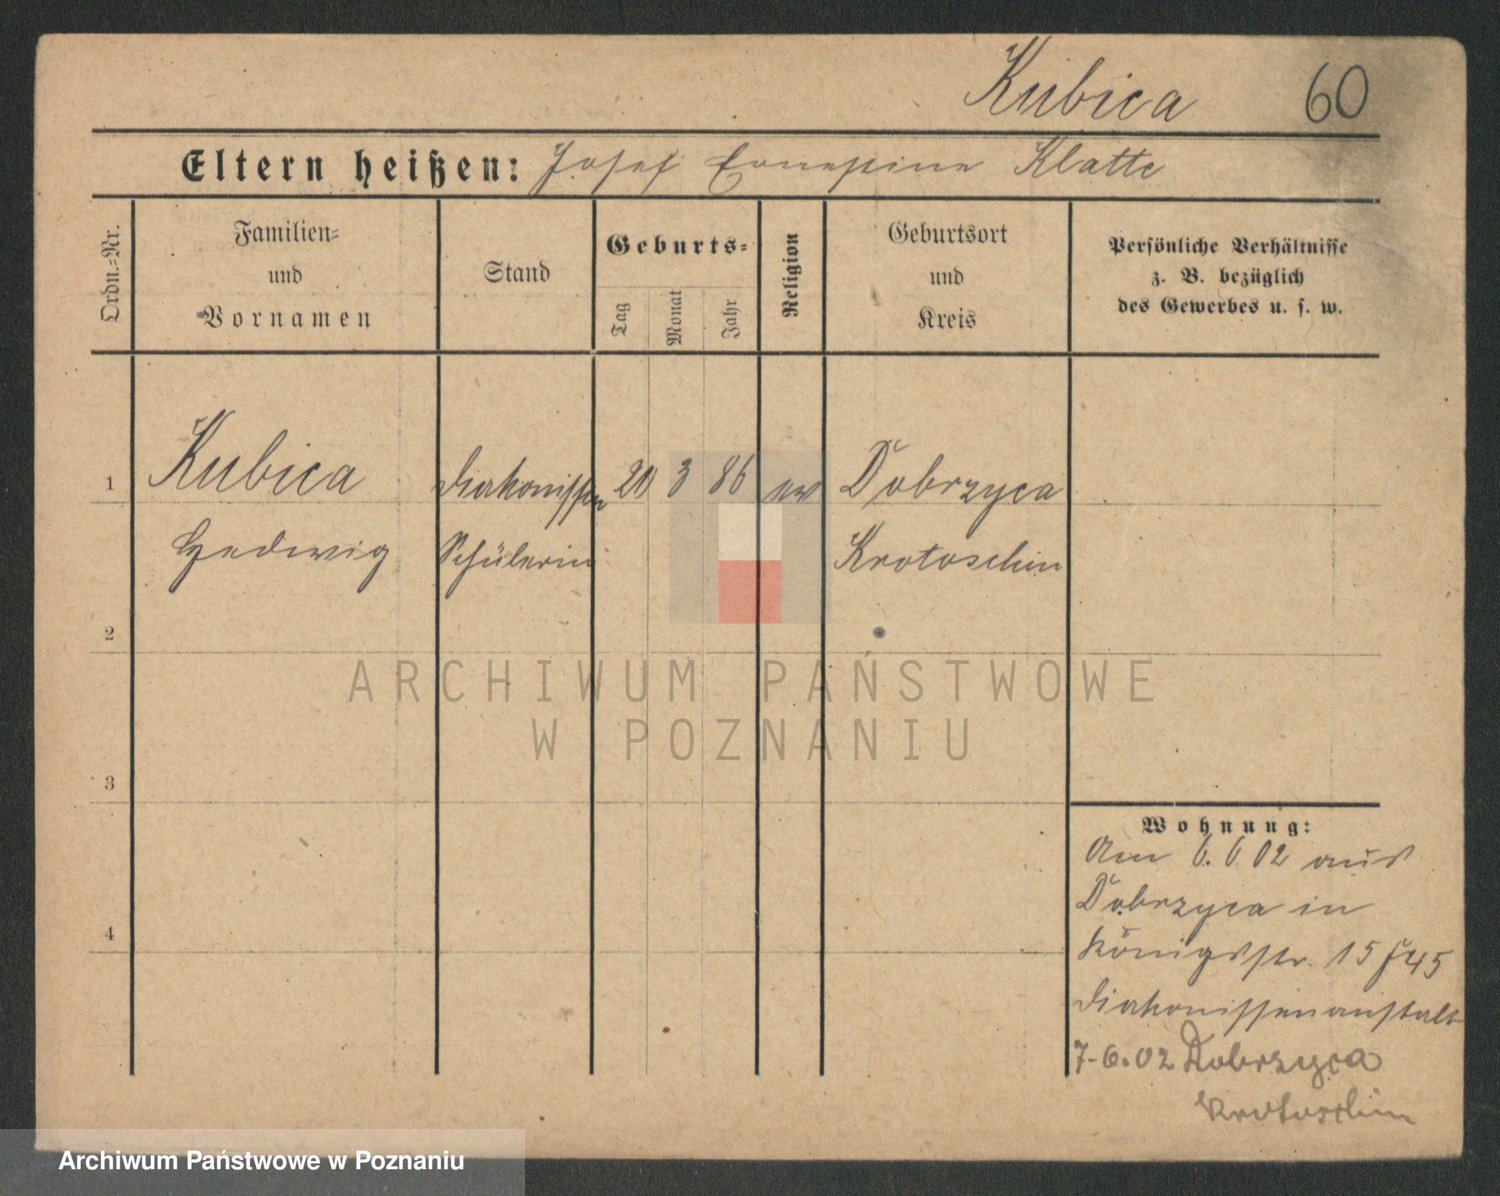 Kubica 60
Eltern heißen: Josef Ernestine Klatte
Ordn.-Nr.
Familien-
und
Vornamen
Stand
Geburts-
Tag
Monat
Jahr
Religion
Geburtsort
und
Kreis
Persönliche Verhältnisse
z. B. bezüglich
des Gewerbes u. s. w.
1 Kubica Diakonissen 20 3 86 ev Dobrzyca
Hedwig Schülerin Krotoschin
2
3
4
Wohnung:
Am 6.6 02 aus
Dobrzyca in
Königsstr. 15
Diakonissenanstalt
7-6.02 Dobrzyca
Krotoschin
ARCHIWUM PAŃSTWOWE
W POZNANIU
Archiwum Państwowe w Poznaniu